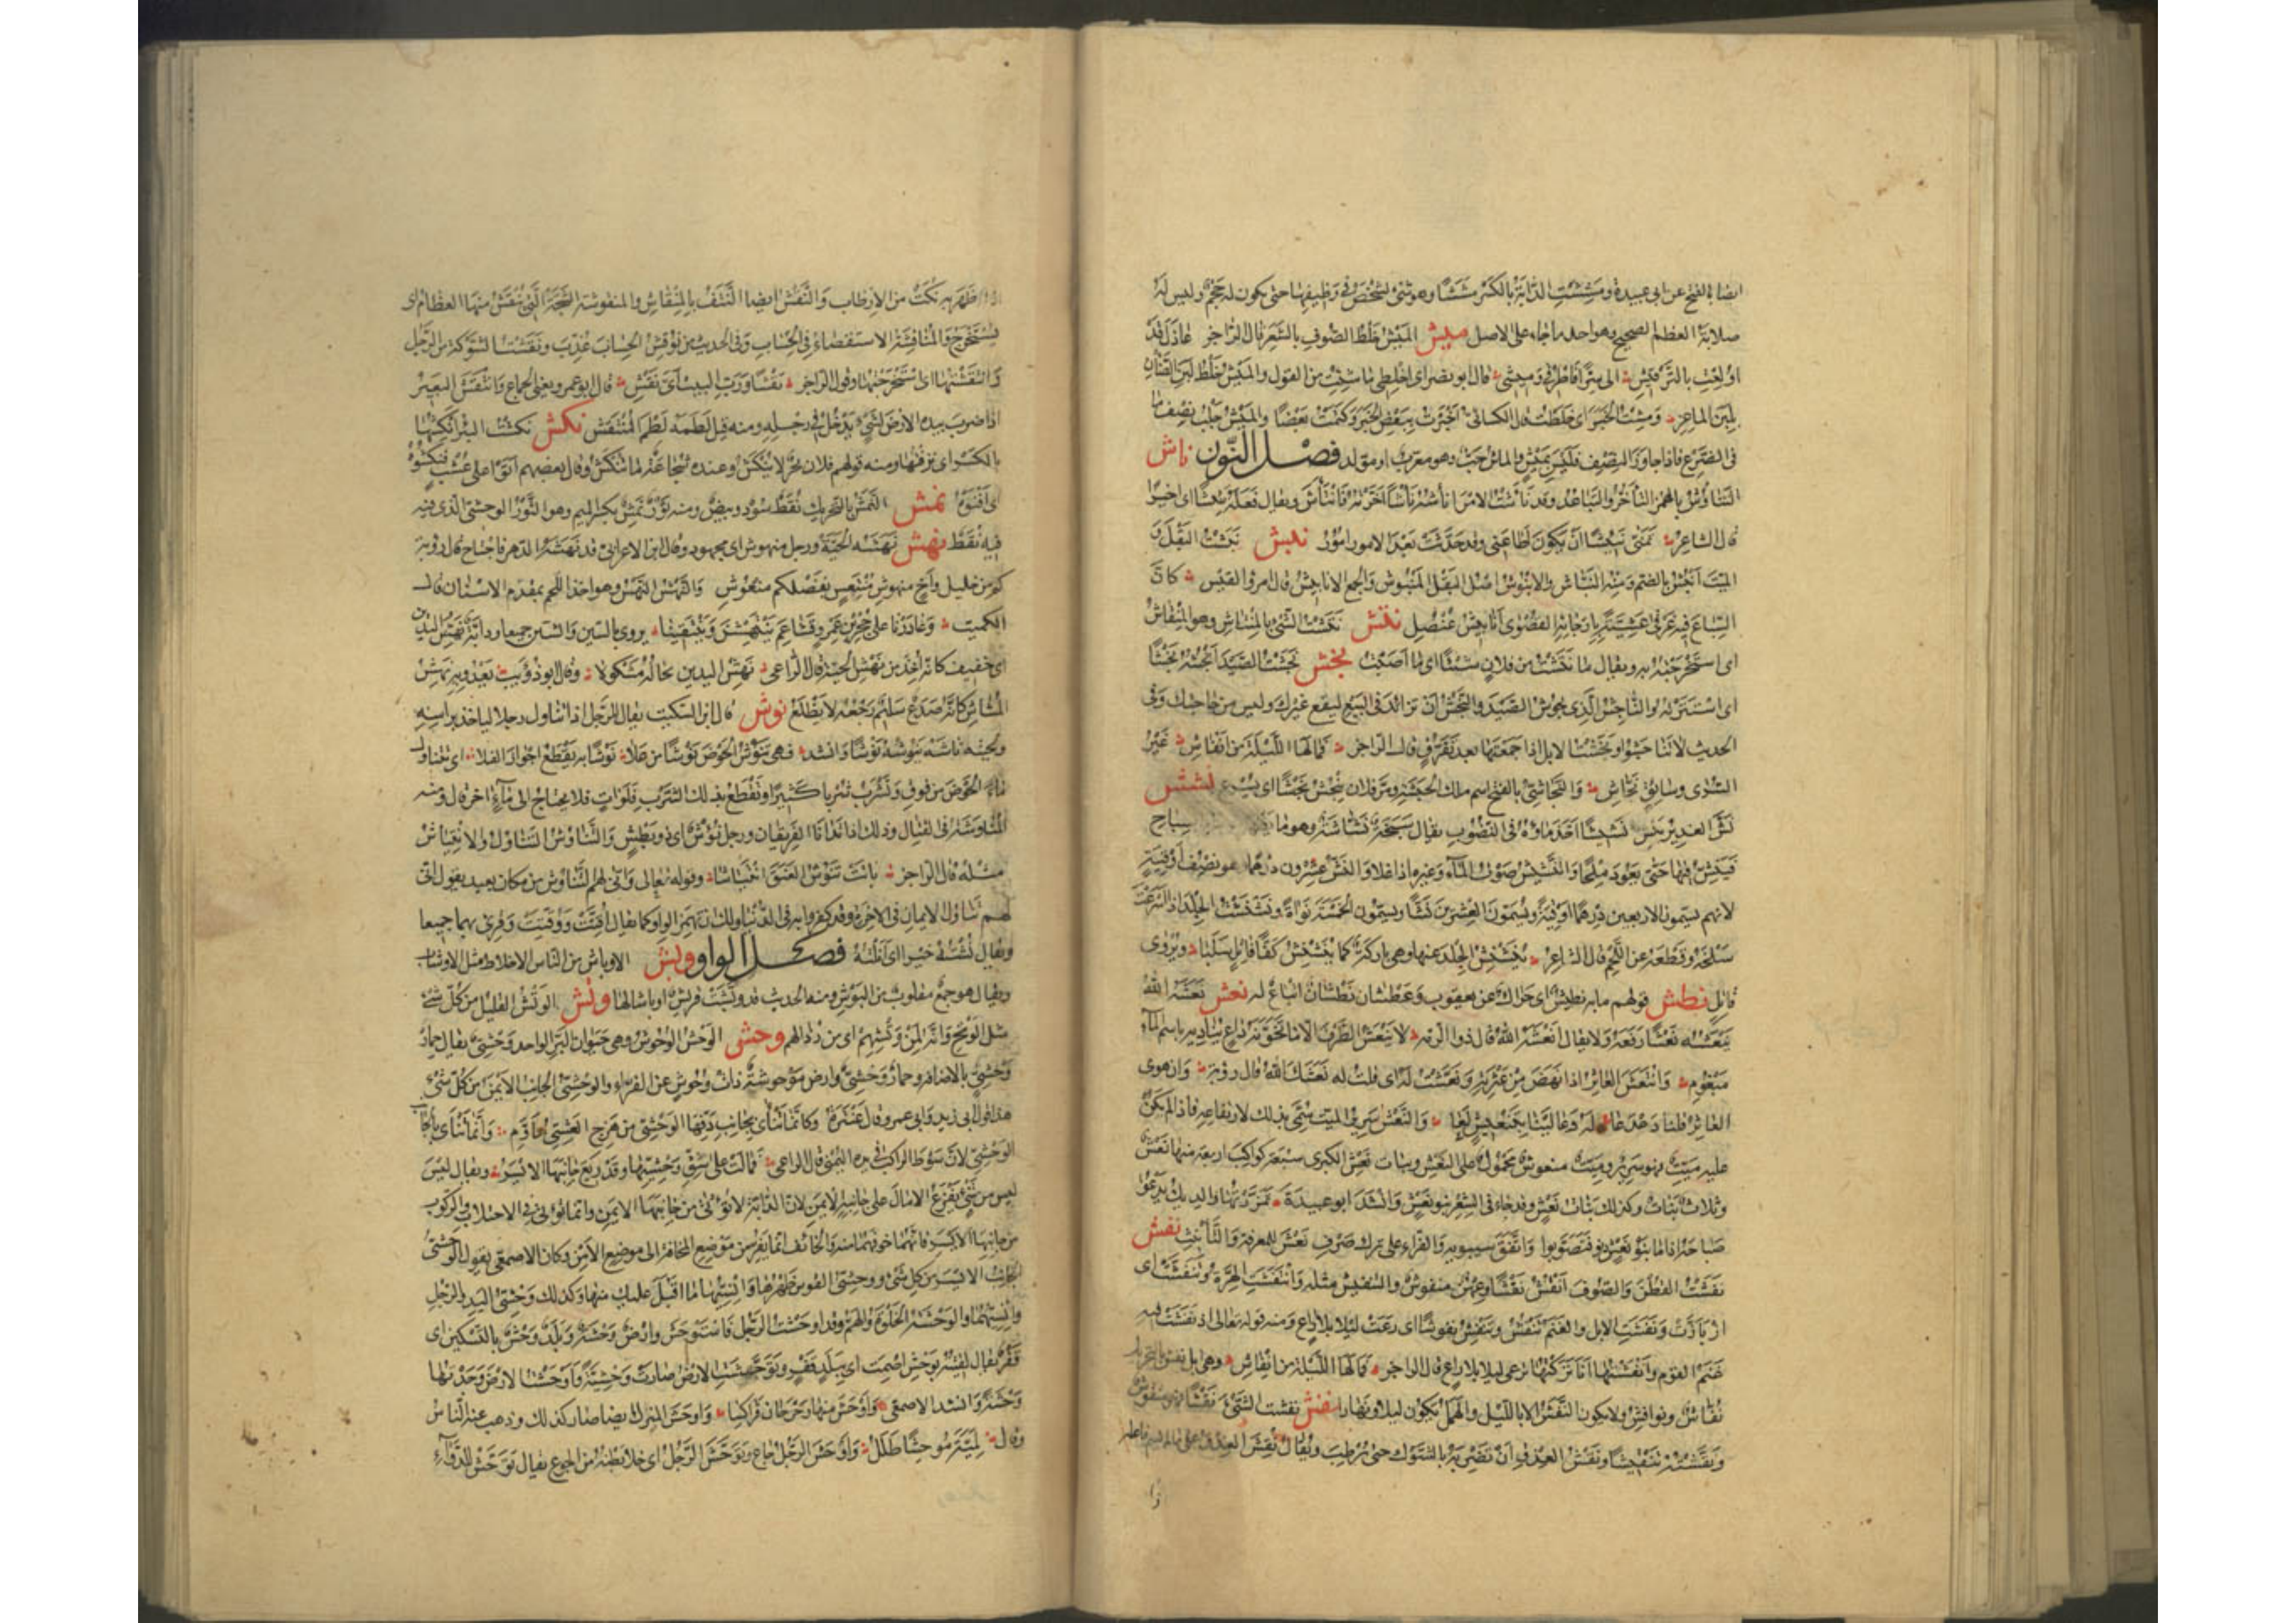 ايضا بالفتح عن ابى عبيدة ومششت الدابة بالكسر مششا وهو شئ يشخص فى وظيفها حتى يكون له حجم وليس له
صلابة العظم الصحيح وهو احد ما جاء على الاصل ميش الميش خلط الصوف بالشعر قال الراجز عاذل قد
اولعت بالترقيش الى سرا فاطرقى وميشى قال ابو نصر اى اخلطى ما شئت من القول والميش خلط لبن الضان
بلبن الماعز ومشت الخبر اى خلطت قال الكسائى اخبرت ببعض الخبر وكتمت بعضا والميش حلب نصف ما
فى الضرع فاذا جاوز النصف فليس بميش والماش حب وهو معرب او مولد فصل النون ناش
التناؤش بالهمز التأخر والتباعد وقد نأشت الامر انأشه نأشا اخرته فانتأش ويقال فعله نئيشا اى اخيرا
قال الشاعر تمنى نئيشا ان يكون اطاعنى وقد حدثت بعد الامور امور نبش نبشت البقل و
الميت انبش بالضم ومنه النباش والانبوش اصل البقل المنبوش والجمع الانابيش قال امرؤ القيس كان
السباع فيه غرقى عشية بارجائه القصوى انابيش عنصل نتش نتشت الشئ بالمنتاش وهو المنقاش
اى استخرجته به ويقال ما نتشت من فلان شيئا اى ما اصبت نجش نجشت الصيد انجشه نجشا
اى استثرته والناجش الذى يحوش الصيد والنجش ان تزايد فى البيع ليقع غيرك وليس من حاجتك وفى
الحديث لا تناجشوا ونجشت الابل اذا جمعتها بعد تفرق قال الراجز فما لها الليلة من انفاش غير
السرى وسائق نجاش والنجاشى بالفتح اسم ملك الحبشة ومر فلان ينجش نجشا اى يسرع نشش
نش الغدير ينش نشيشا اخذ ماؤه فى النضوب يقال سبخة نشاشة وهو ما
فينش فيها حتى يعود ملحا والنشيش صوت الماء وغيره اذا غلا والنش عشرون درهما وهو نصف اوقية
لانهم يسمون الاربعين درهما اوقية ويسمون العشرين نشا ويسمون الخمسة نواة ونشنشت الجلد اذا اسرعت
سلخه وقطعه عن اللحم قال الشاعر ينشنش الجلد عنها وهى باركة كما ينشنش كفا قاتل سلبا ويروى
فاتل نطش قولهم ما به نطيش اى حراك عن يعقوب وعطشان نطشان اتباع له نعش نعشه الله
ينعشه نعشا رفعه ولا يقال انعشه الله قال ذو الرمة لا ينعش الطرف الا ما تخونه داع يناديه باسم الماء
مبغوم وانتعش العاثر اذا نهض من عثرته ونعشت له اى قلت له نعشك الله قال رؤبة وان هوى
العاثر قلنا دعدعا له وعالينا بتنعيش لعا والنعش سرير الميت سمى بذلك لارتفاعه فاذا لم يكن
عليه ميت فهو سرير وميت منعوش محمول على النعش وبنات نعش الكبرى سبعة كواكب اربعة منها نعش
وثلاث بنات وكذلك بنات نعش وقد جاء فى الشعر بنو نعش وانشد ابو عبيدة تمززتها والديك يدعو
صباحه اذا ما بنو نعش دنوا فتصوبوا واتفق سيبويه والفراء على ترك صرف نعش للمعرفة والتأنيث نفش
نفشت القطن والصوف انفش نفشا وعهن منفوش والتنفيش مثله وانتفشت الهرة وتنفشت اى
ازبأرت ونفشت الابل والغنم تنفش وتنفش نفوشا اى رعت ليلا بلا راع ومنه قوله تعالى اذ نفشت فيه
غنم القوم وانفشتها انا تركتها ترعى ليلا بلا راع قال الراجز فما لها الليلة من انفاش وهى ابل نفش بالتحريك
نفاش ونوافش ولا يكون النفش الا بالليل والهمل يكون ليلا ونهارا نقش نقشت الشئ نقشا فهو منقوش
ونقشته تنقيشا ونقش العذق ان تضربه بالشوك حتى يرطب ويقال نقش العذق على ما لم يسم فاعله
اذا ظهر به نكت من الارطاب والنقش ايضا النتف بالمنقاش والمنقوشة الشجة التى تنقش منها العظام اى
يستخرج والمناقشة الاستقصاء فى الحساب وفى الحديث من نوقش الحساب عذب ونقشت الشوكة من الرجل
وانتقشتها اى استخرجتها وقول الراجز نقشا ورب البيت اى نقش قال ابو عمرو يعنى الجماع وانتقش البعير
اذا ضرب بيده الارض لشئ يدخل فى رجله ومنه قيل لطمه لطم المنتقش نكش نكشت البئر انكشها
بالكسر اى نزفتها ومنه قولهم فلان بحر لا ينكش وعنده شجاعة ما تنكش وقال بعضهم اتوا على عشب فنكشوه
اى افنوه نمش النمش بالتحريك نقط سود وبيض ومنه ثور نمش بكسر الميم وهو الثور الوحشى الذى فيه
فيه نقط نهش نهشته الحية ورجل منهوش اى مجهود وقال ابن الاعرابى قد نهشه الدهر فاحتاج قال رؤبة
كم من خليل واخ منهوش منتعش بفضلكم منعوش والنهش النهس وهو اخذ اللحم بمقدم الاسنان قال
الكميت وغادرنا على حجر بن عمرو قشاعم ينتهشن وينتقينا يروى بالسين والشين جميعا ودابة نهش اليدين
اى خفيف كانه اخذ من نهش الحية قال الراعى نهش اليدين تخاله مشكولا وقال ابو ذؤيب يعدو به نهش
المشاش كانه صدع سليم رجعه لا يظلع نوش قال ابن السكيت يقال للرجل اذا تناول رجلا لياخذ براسه
ولحيته ناشه ينوشه نوشا وانشد فهى تنوش الحوض نوشا من علا نوشا به تقطع اجواز الفلا اى تتناول
ماء الحوض من فوق وتشرب شربا كثيرا وتقطع بذلك الشرب فلوات فلا تحتاج الى ماء اخر قال ومنه
المناوشة فى القتال وذلك اذا تدانا الفريقان ورجل نؤوش اى ذو بطش والتناوش التناول والانتياش
مثله قال الراجز باتت تنوش العنق انتياشا وقوله تعالى وانى لهم التناوش من مكان بعيد يقول انى
لهم تناول الايمان فى الاخرة وقد كفروا به فى الدنيا ولك ان تهمز الواو كما يقال اقتت ووقتت وقرئ بهما جميعا
ويقال نشته خيرا اى انلته فصل الواو وبش الاوباش من الناس الاخلاط مثل الاوشاب
ويقال هو جمع مقلوب من البوش ومنه الحديث قد وبشت قريش اوباشا لها وتش الوتش القليل من كل شئ
مثل الوتح وانه لمن وتشهم اى من رذالهم وحش الوحش الوحوش وهى حيوان البر الواحد وحشى يقال حمار
وحش بالاضافة وحمار وحشى وارض موحوشة ذات وحوش عن الفراء والوحشى الجانب الايمن من كل شئ
هذا قول ابى زيد وابى عمرو قال عنترة وكانما تنأى بجانب دفها الوحشى من هزج العشى مؤوم وانما تنأى بالجانب
الوحشى لان سوط الراكب فى يده اليمنى قال الراعى فمالت على شق وحشيها وقد ريع جانبها الايسر ويقال ليس
ليس من شئ يفزع الا مال على جانبه الايمن لان الدابة لا تؤتى من جانبها الايمن وانما تؤتى فى الاحتلاب والركوب
من جانبها الايسر فانما خوفها منه والخائف انما يفر من موضع المخافة الى موضع الامن وكان الاصمعى يقول الوحشى
الجانب الايسر من كل شئ ووحشى القوس ظهرها وانسيها ما اقبل عليك منها وكذلك وحشى اليد والرجل
وانسيهما والوحشة الخلوة والهم وقد اوحشت الرجل فاستوحش وارض وحشة وبلد وحش بالتسكين اى
قفر يقال لقيته بوحش اصمت اى ببلد قفر وتوحشت الارض صارت وحشة واوحشت الارض وجدتها
وحشة وانشد الاصمعى واوحش منها رحرحان فراكسا واوحش المنزل ايضا صار كذلك وذهب عنه الناس
وقال لمية موحشا طلل واوحش الرجل جاع وتوحش الرجل اى خلا بطنه من الجوع يقال توحش للدواء